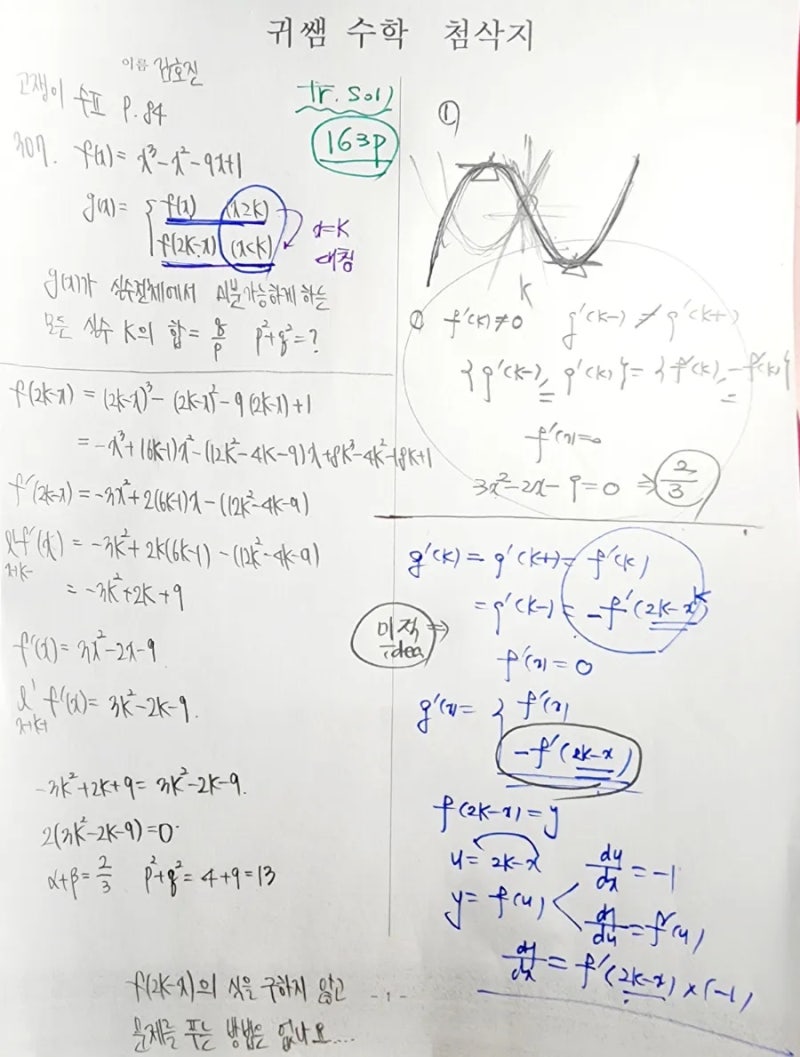 귀쌤 수학 첨삭지
이름 김호진
고쟁이 수표 P.84
307. f(x) = x³-x²-9x+1
g(x) = { f(x) (x≥k)
f(2k-x) (x<k)
x=k
대칭
g(x)가 실수전체에서 미분가능하게 하는
모든 실수 k의 합 = q/p p²+q²=?
f(2k-x) = (2k-x)³-(2k-x)²-9(2k-x)+1
= -x³+(6k-1)x²-(12k²-4k-9)x+8k³-4k²-18k+1
f'(2k-x) = -3x²+2(6k-1)x-(12k²-4k-9)
f'(x) = -3k²+2k(6k-1)-(12k²-4k-9)
x→k-
= -3k²+2k+9
f'(x) = 3x²-2x-9
f'(x) = 3k²-2k-9.
x→k+
-3k²+2k+9 = 3k²-2k-9.
2(3k²-2k-9)=0
α+β=2/3 p²+q²=4+9=13
f(2k-x)의 식을 구하지 않고
문제를 푸는 방법은 없나요....
- 1 -
Tr. Sol)
163p
①
k
② f'(k)≠0 g'(k-) ≠ g'(k+)
{g'(k-), g'(k)} = {f'(k), -f'(k)}
f'(x)=0
3x²-2x-9=0 ⇒ 2/3
g'(k) = g'(k+) = f'(k)
= g'(k-) = -f'(2k-x) k
미적 idea ⇒
f'(x) = 0
g'(x) = { f'(x)
-f'(2k-x)
f(2k-x) = y
u = 2k-x du/dx = -1
y = f(u) dy/du = f'(u)
dy/dx = f'(2k-x) × (-1)